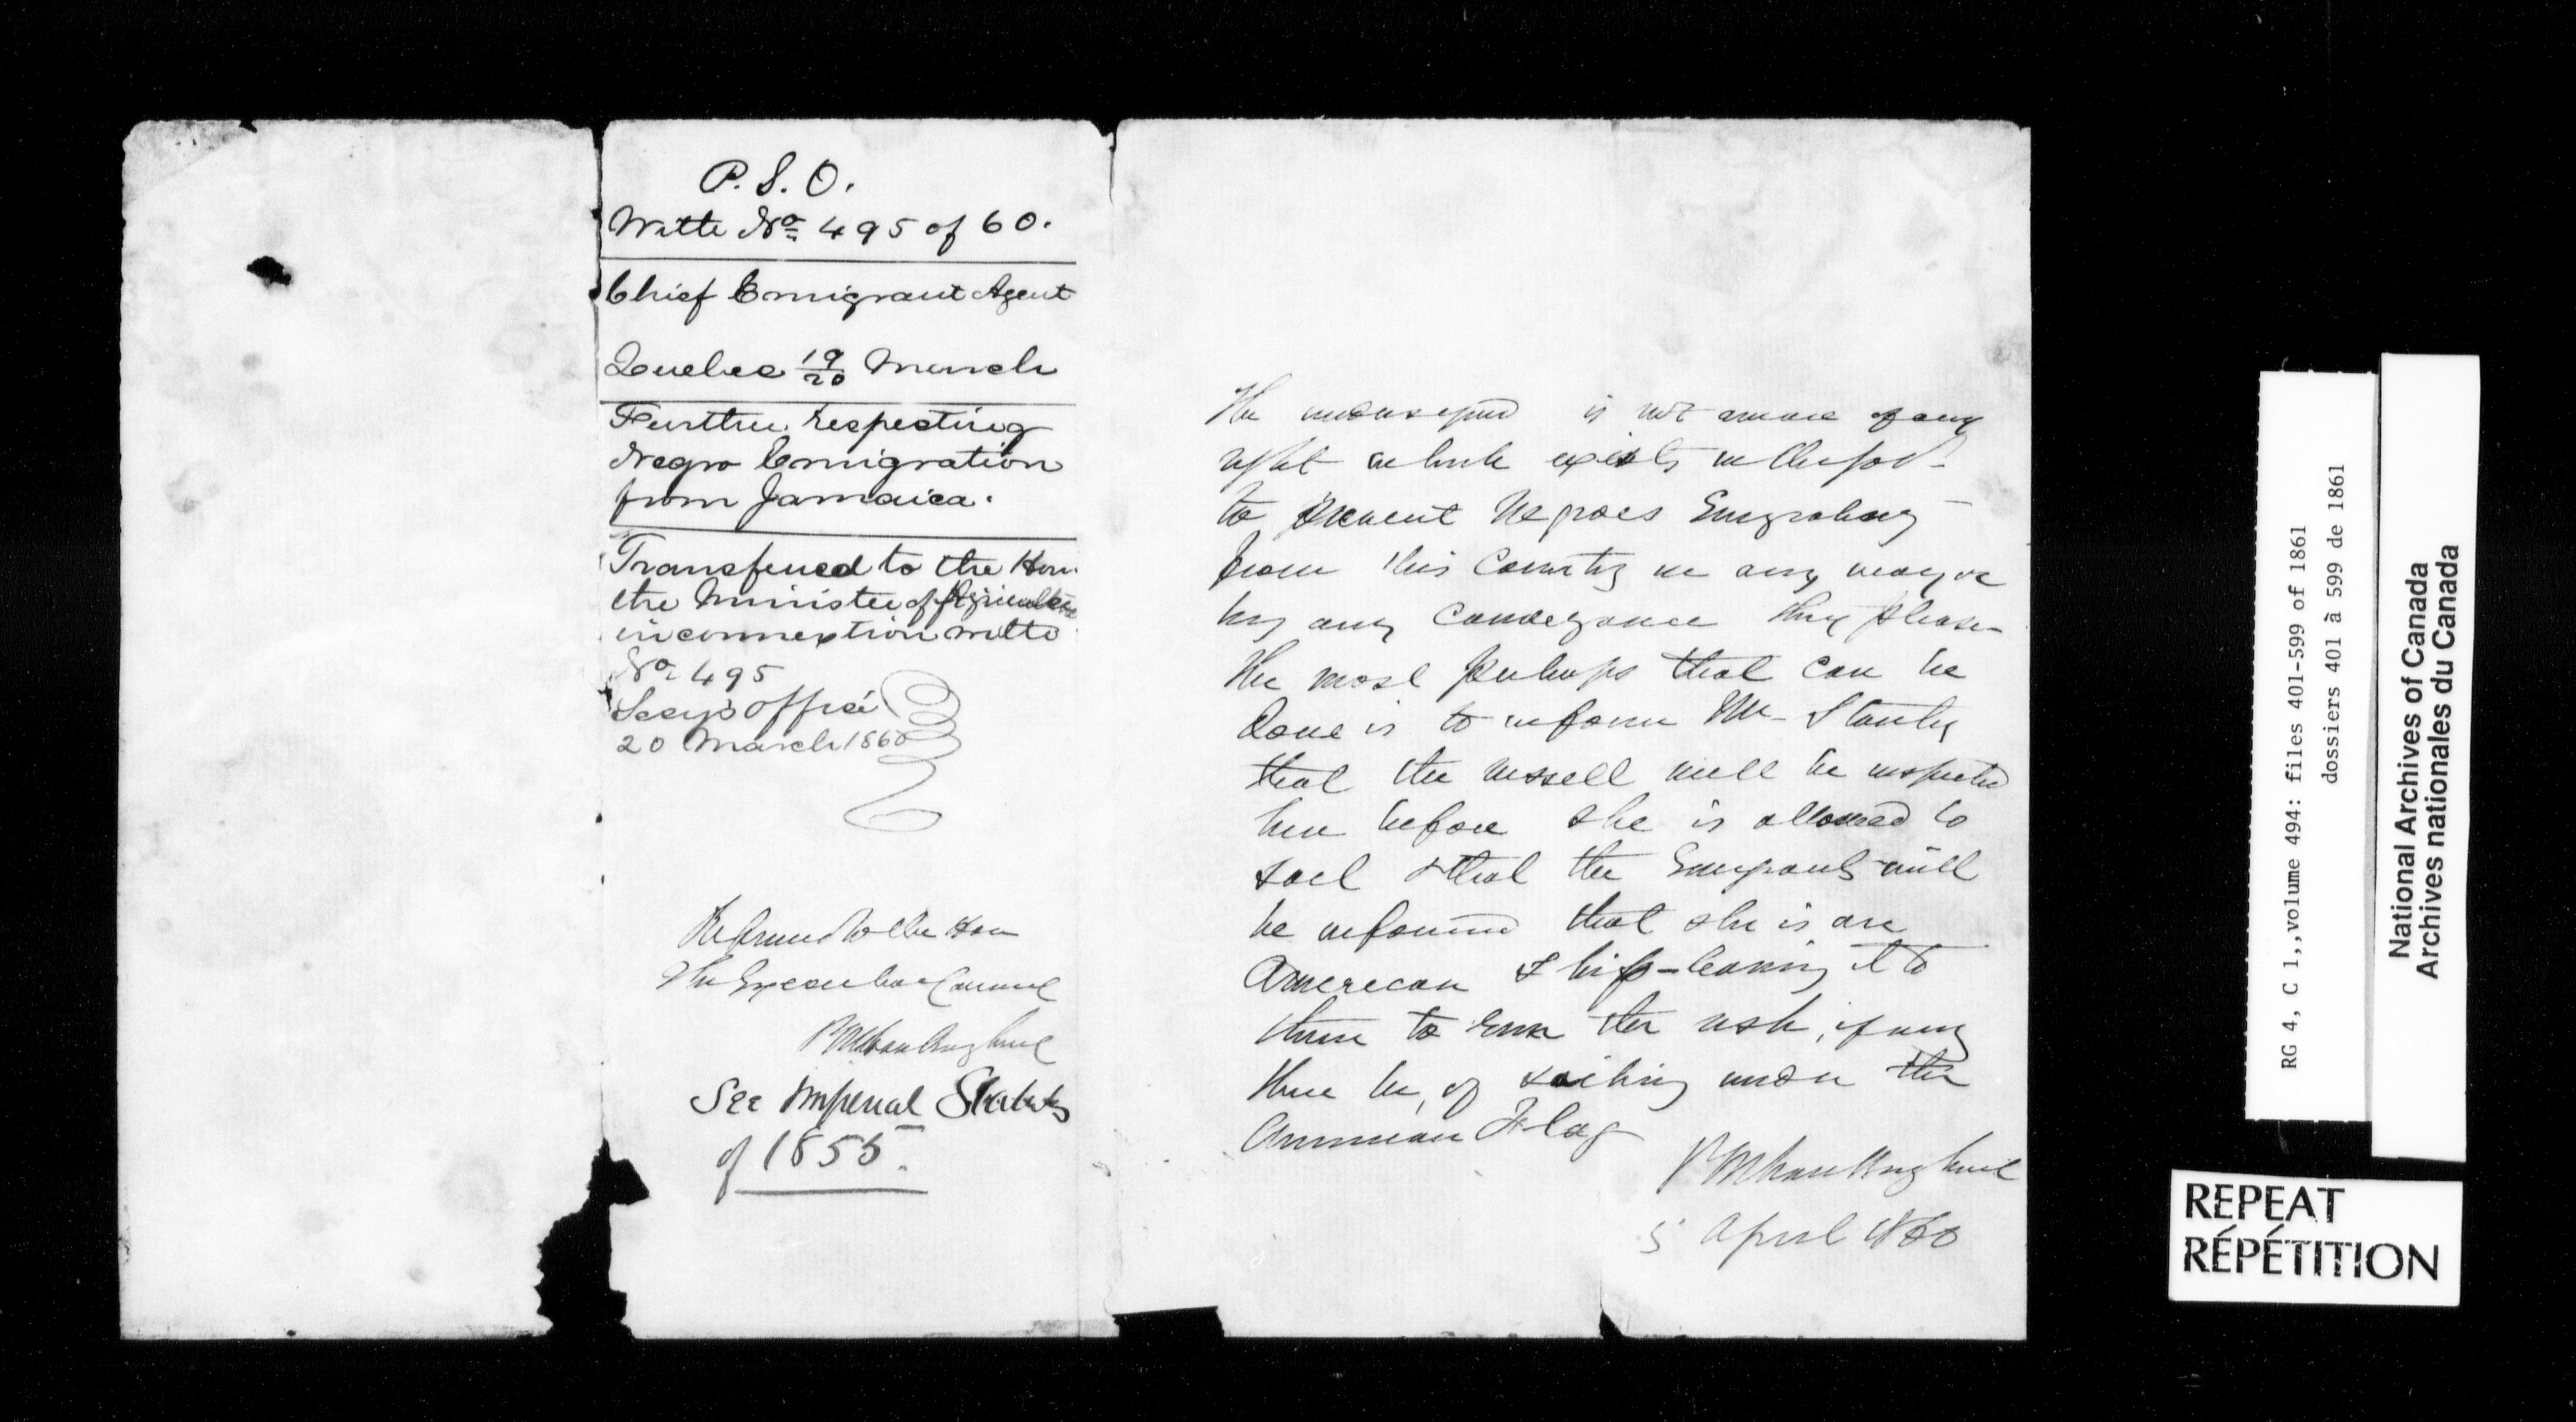 P. S. O.
With No 495 of 60.
Chief Emigrant Agent
Quebec 19/20 March
Further respecting
Negro Emigration
from Jamaica.
Transferred to the Hon.
the Minister of Agriculture
in connexion with
No 495
Secy's Office
20 March 1860
Referred to the Hon
The Executive Council
P M VanKoughnet
See Imperial Statutes
of 1855.
The undersigned is not aware of any
right which exists in the Govt
to prevent Negroes Emigrating
from this Country in any way or
by any conveyance they please
The most perhaps that can be
done is to inform Mr Stanley
that the vessell will be inspected
here before she is allowed to
sail & that the Emigrants will
be informed that she is an
American Ship - leaving it to
them to run the risk, if any
there be, of sailing under the
American Flag
P M VanKoughnet
5 April 1860
RG 4, C 1,,volume 494: files 401-599 of 1861
dossiers 401 à 599 de 1861
National Archives of Canada
Archives nationales du Canada
REPEAT
RÉPÉTITION